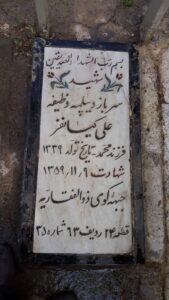 بسم رب الشهدا و الصدیقین
شهید
سرباز دیپلمه وظیفه
علی کیانفر
فرزند محمد تاریخ تولد ۱۳۳۹
شهادت ۶ ر ۱۱ ر ۱۳۵۹
جبهه کوی ذوالفقاریه
قطعه ۲۴ ردیف ۶۳ شماره ۳۵